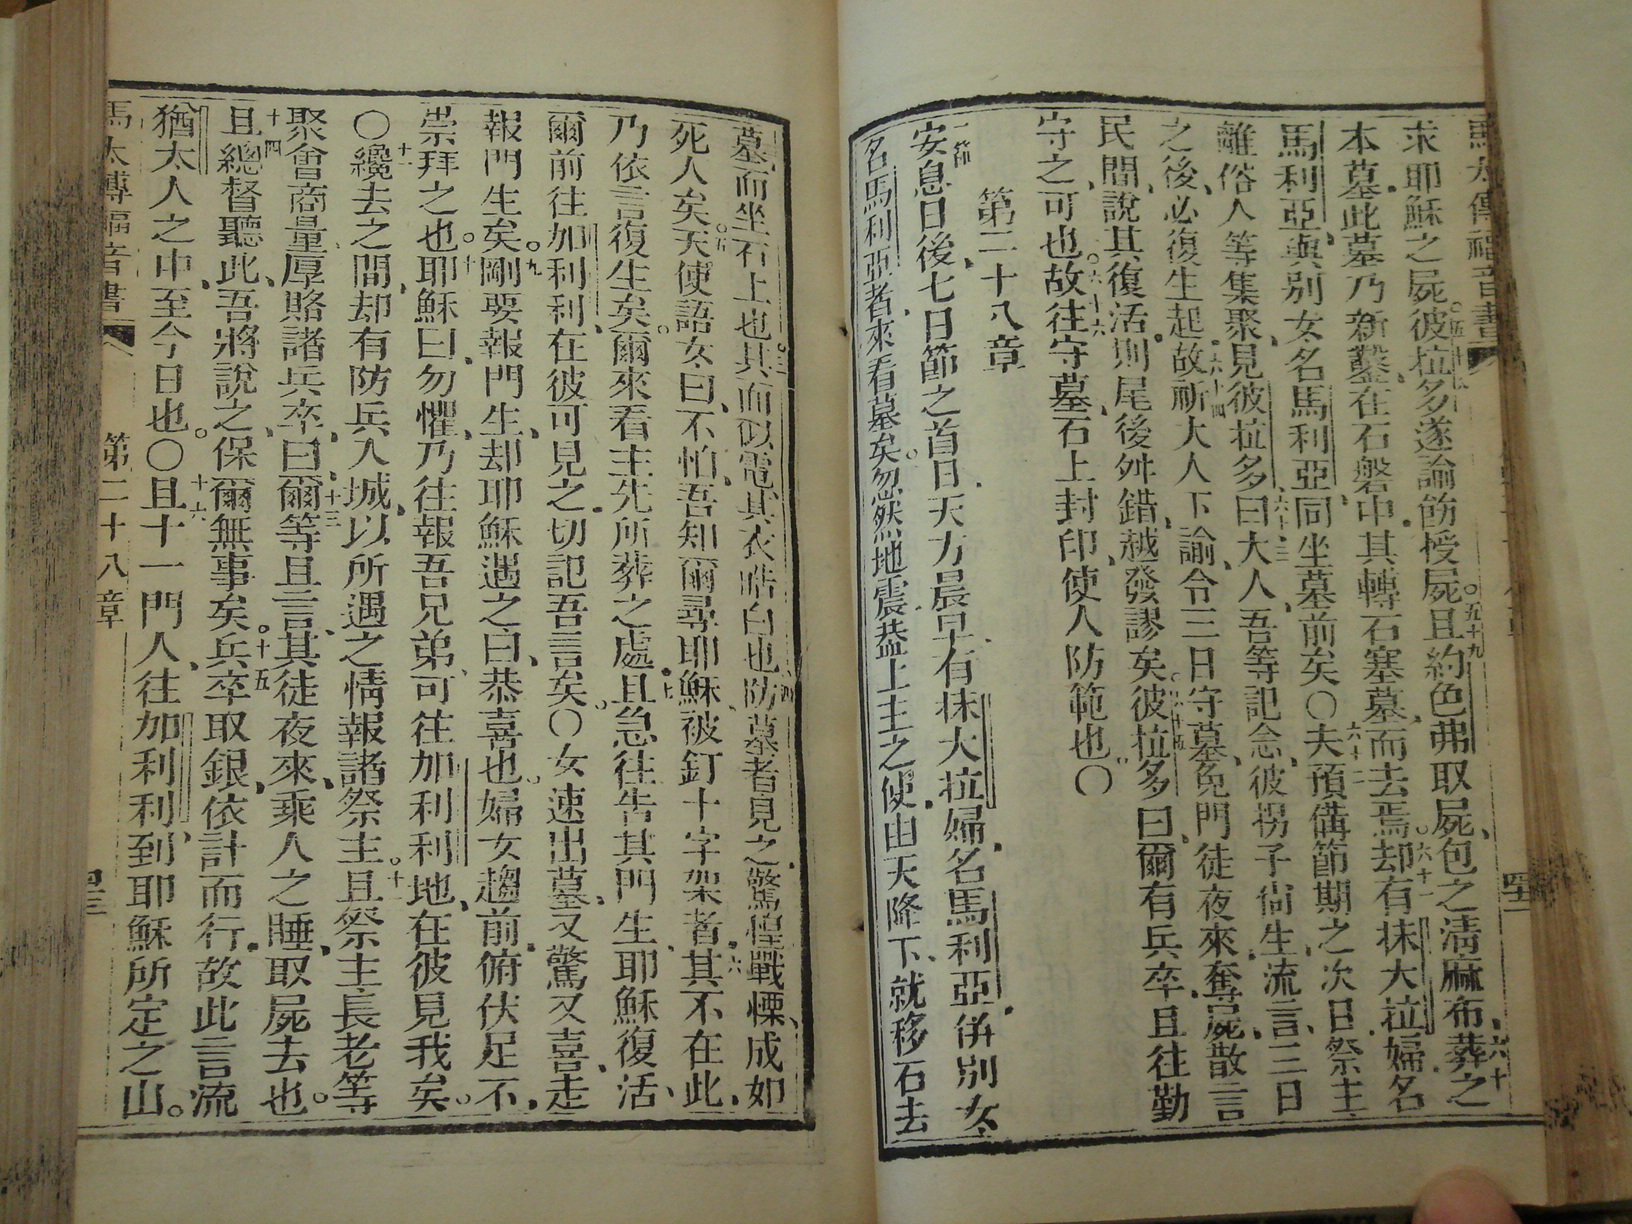 馬太傳福音書
求耶穌之屍。彼拉多遂論飭授屍。五十九且約色弗取屍、包之清麻布、六十葬之
本墓。此墓乃新鑿在石磐中。其轉石塞墓、而去焉。六十一却有抹大拉婦、名
馬利亞、與別女名馬利亞、同坐墓前矣○六十二夫預備節期之次日、祭主、
離俗人等集聚、見彼拉多、六十三曰、大人、吾等記念、彼拐子尙生、流言、三日
之後、必復生起。六十四故祈大人下諭、令三日守墓、免門徒夜來、奪屍、散言
民間、說其復活。則尾後舛錯、越發謬矣。六十五彼拉多曰、爾有兵卒、且往勤
守之、可也。六十六故往守墓、石上封印、使人防範也○
第二十八章
一節安息日後、七日節之首日、天方晨早、有抹大拉婦、名馬利亞、併別女
名馬利亞者、來看墓矣。忽然地震、蓋上主之使、由天降下、就移石去
墓、而坐石上也。三其面似電、其衣皓白也。四防墓者見之、驚惶戰慄、成如
死人矣。五天使語女曰、不怕、吾知爾尋耶穌、被釘十字架者。六其不在此、
乃依言復生矣。爾來看主先所葬之處。七且急往告其門生、耶穌復活、
爾前往加利利、在彼可見之、切記吾言矣。○女速出墓、又驚又喜、走
報門生矣。九剛要報門生、却耶穌遇之曰、恭喜也。婦女趨前、俯伏足下、
崇拜之也。十耶穌曰、勿懼、乃往報吾兄弟、可往加利利地、在彼見我矣。
○十一纔去之間、却有防兵入城、以所遇之情報諸祭主。十二且祭主長老等
聚會商量、厚賂諸兵卒、十三曰、爾等且言、其徒夜來、乘人之睡、取屍去也。
十四且總督聽此、吾將說之、保爾無事矣。十五兵卒取銀、依計而行。故此言流
猶太人之中、至今日也。○十六且十一門人、往加利利、到耶穌所定之山。
馬太傳福音書 第二十八章